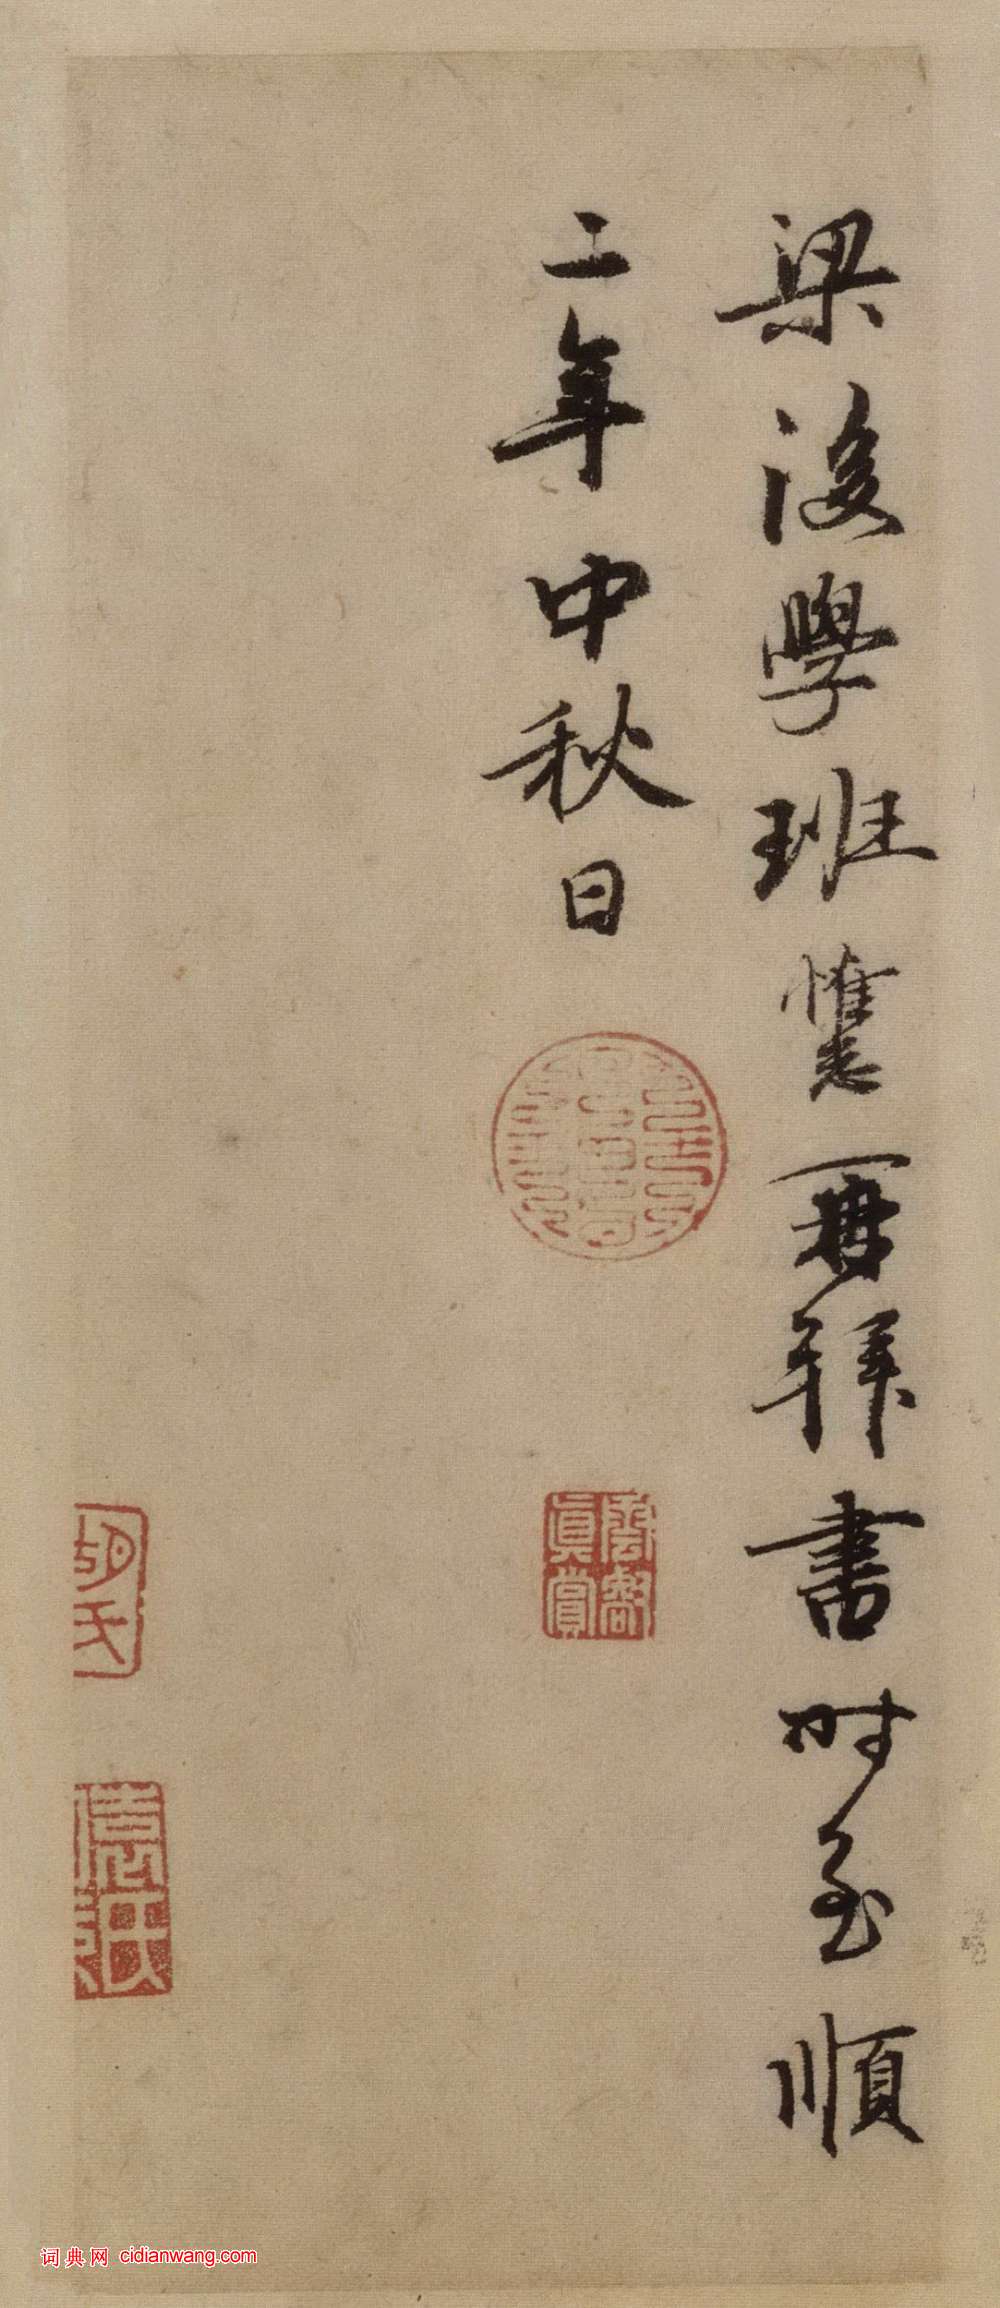 梁後學班惟志再拜書時至順
二年中秋日
雲
真賞
胡氏
词典网 cidianwang.com